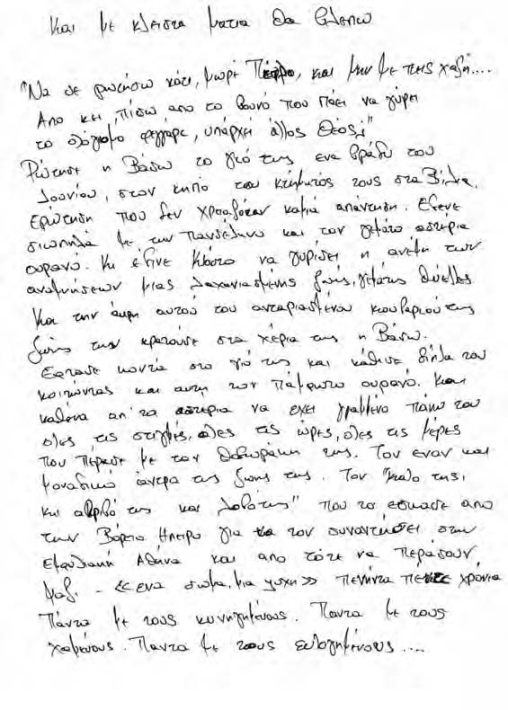 Και με κλειστα ματια θα βλεπω
"Να σε ρωτήσω κάτι, μωρέ, και μην με πεις χαζή....
Απο κει, πίσω απο το βουνό που πάει να γύρει
το ολόγιομο φεγγάρι, υπάρχει άλλος Θεός;"
Ρώτησε η Βάσω το γιό της ενα βράδυ του
Ιουνίου, στον κηπο του κτήματός τους στα Βίλια.
Ερώτηση που δεν χρειαζόταν καμιά απάντηση. Εμεινε
σιωπηλά με την Πανσέληνο και τον γεμάτο αστερια
ουρανό. Κι εγινε να γυρίσει η ανεμη των
αναμνήσεων μιας λαχανιασμένης ζωής, γεμάτης θύελλες
Και την άκρη αυτού του ανταριασμένου κουβαριού της
ζωής της κρατουσε στα χέρια της η Βάσω.
Εφτασε κοντά στο γιό της και κάθισε δίπλα του
κοιτώντας και αυτη τον ουρανό. Και
καθενα απ' τα αστερια να εχει γραμμένο πάνω του
ολες τις στιγμές, ολες τις ώρες, ολες τις μέρες
που πέρασε με τον Θοδωράκη της. Τον εναν και
μοναδικό άντρα της ζωης της. Τον "καλο της,
κι ακριβό της και λεβέντη" που το εσκασε απο
την Βόρειο Ηπειρο για να τον συναντήσει στην
Εμφυλιακή Αθήνα και απο τότε να περάσουν
μαζι - «ενα σωμα, μια ψυχη» πενήντα πεντε χρόνια
Πάντα με τους κυνηγημένους. Παντα με τους
χαμένους. Παντα με τους ευλογημένους ....